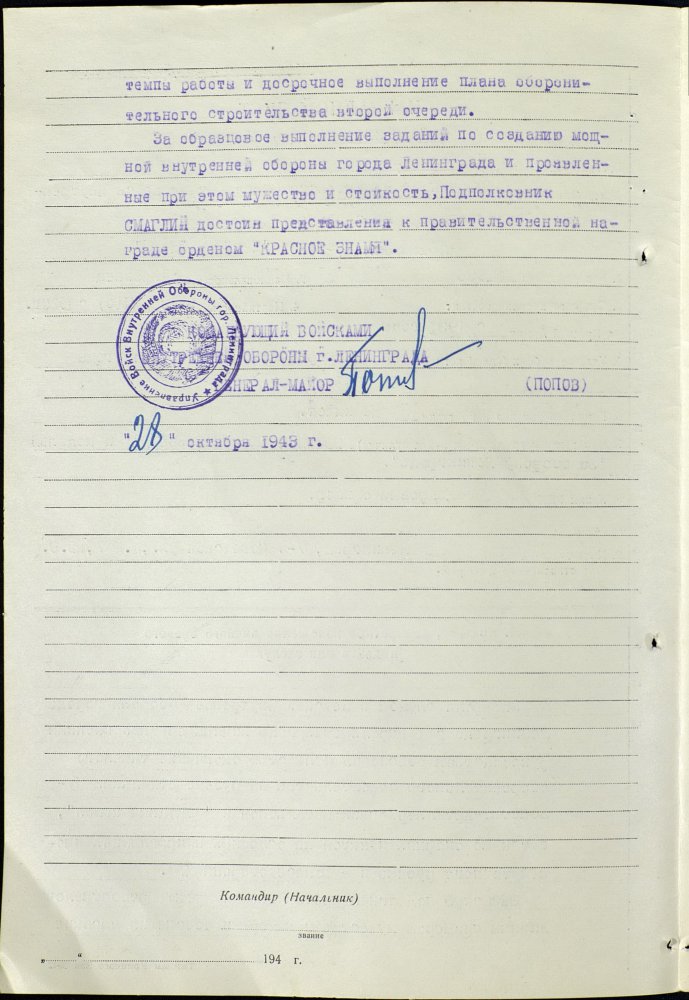 темпы работы и досрочное выполнение плана оборони-
тельного строительства второй очереди.
За образцовое выполнение заданий по созданию мощ-
ной внутренней обороны города Ленинграда и проявлен-
ные при этом мужество и стойкость, Подполковник
СМАГЛИЙ достоин представления к правительственной на-
граде орденом "КРАСНОЕ ЗНАМЯ".
Управление Войск Внутренней Обороны гор. Ленинграда ★
КОМАНДУЮЩИЙ ВОЙСКАМИ
ОБОРОНЫ г.ЛЕНИНГРАДА
ГЕНЕРАЛ-МАЙОР Попов (ПОПОВ)
"28" октября 1943 г.
Командир (Начальник)
звание
„ “ 194 г.